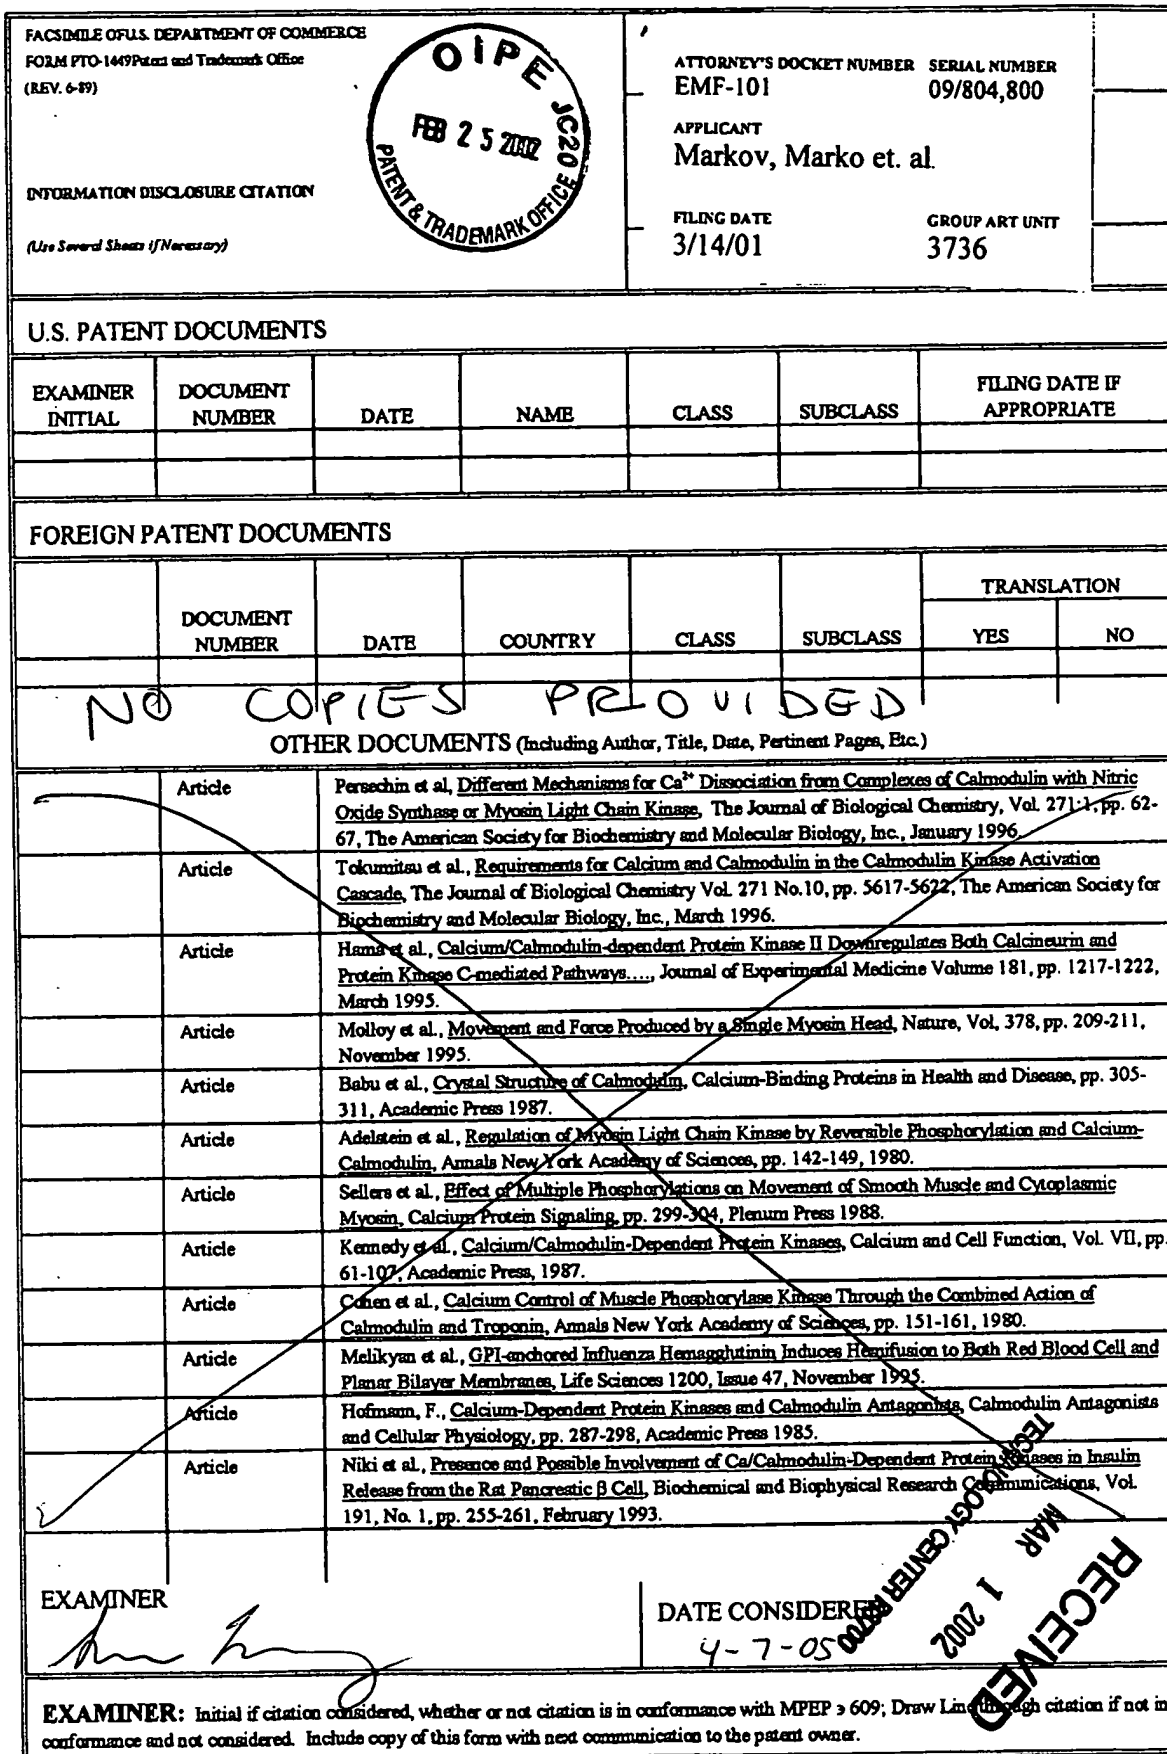 FACSIMILE OF U.S. DEPARTMENT OF COMMERCE
FORM PTO-1449 Patent and Trademark Office
(REV. 6-89)
INFORMATION DISCLOSURE CITATION
(Use Several Sheets if Necessary)
OIPE JC20
FEB 25 2002
PATENT & TRADEMARK OFFICE
ATTORNEY'S DOCKET NUMBER SERIAL NUMBER
EMF-101 09/804,800
APPLICANT
Markov, Marko et. al.
FILING DATE GROUP ART UNIT
3/14/01 3736
U.S. PATENT DOCUMENTS
EXAMINER INITIAL DOCUMENT NUMBER DATE NAME CLASS SUBCLASS FILING DATE IF APPROPRIATE
FOREIGN PATENT DOCUMENTS
TRANSLATION
DOCUMENT NUMBER DATE COUNTRY CLASS SUBCLASS YES NO
NO COPIES PROVIDED
OTHER DOCUMENTS (Including Author, Title, Date, Pertinent Pages, Etc.)
Article Persechin et al, Different Mechanisms for Ca²⁺ Dissociation from Complexes of Calmodulin with Nitric
Oxide Synthase or Myosin Light Chain Kinase, The Journal of Biological Chemistry, Vol. 271:1, pp. 62-
67, The American Society for Biochemistry and Molecular Biology, Inc., January 1996.
Article Tokumitsu et al., Requirements for Calcium and Calmodulin in the Calmodulin Kinase Activation
Cascade, The Journal of Biological Chemistry Vol. 271 No.10, pp. 5617-5622, The American Society for
Biochemistry and Molecular Biology, Inc., March 1996.
Article Hama et al., Calcium/Calmodulin-dependent Protein Kinase II Downregulates Both Calcineurin and
Protein Kinase C-mediated Pathways...., Journal of Experimental Medicine Volume 181, pp. 1217-1222,
March 1995.
Article Molloy et al., Movement and Force Produced by a Single Myosin Head, Nature, Vol, 378, pp. 209-211,
November 1995.
Article Babu et al., Crystal Structure of Calmodulin, Calcium-Binding Proteins in Health and Disease, pp. 305-
311, Academic Press 1987.
Article Adelstein et al., Regulation of Myosin Light Chain Kinase by Reversible Phosphorylation and Calcium-
Calmodulin, Annals New York Academy of Sciences, pp. 142-149, 1980.
Article Sellers et al., Effect of Multiple Phosphorylations on Movement of Smooth Muscle and Cytoplasmic
Myosin, Calcium Protein Signaling, pp. 299-304, Plenum Press 1988.
Article Kennedy et al., Calcium/Calmodulin-Dependent Protein Kinases, Calcium and Cell Function, Vol. VII, pp.
61-107, Academic Press, 1987.
Article Cohen et al., Calcium Control of Muscle Phosphorylase Kinase Through the Combined Action of
Calmodulin and Troponin, Annals New York Academy of Sciences, pp. 151-161, 1980.
Article Melikyan et al., GPI-anchored Influenza Hemagglutinin Induces Hemifusion to Both Red Blood Cell and
Planar Bilayer Membranes, Life Sciences 1200, Issue 47, November 1995.
Article Hofmann, F., Calcium-Dependent Protein Kinases and Calmodulin Antagonists, Calmodulin Antagonists
and Cellular Physiology, pp. 287-298, Academic Press 1985.
Article Niki et al., Presence and Possible Involvement of Ca/Calmodulin-Dependent Protein Kinases in Insulin
Release from the Rat Pancreatic β Cell, Biochemical and Biophysical Research Communications, Vol.
191, No. 1, pp. 255-261, February 1993.
EXAMINER
DATE CONSIDERED
4-7-05
RECEIVED
MAR 1 2002
TECHNOLOGY CENTER R3700
EXAMINER: Initial if citation considered, whether or not citation is in conformance with MPEP э 609; Draw Line through citation if not in
conformance and not considered. Include copy of this form with next communication to the patent owner.